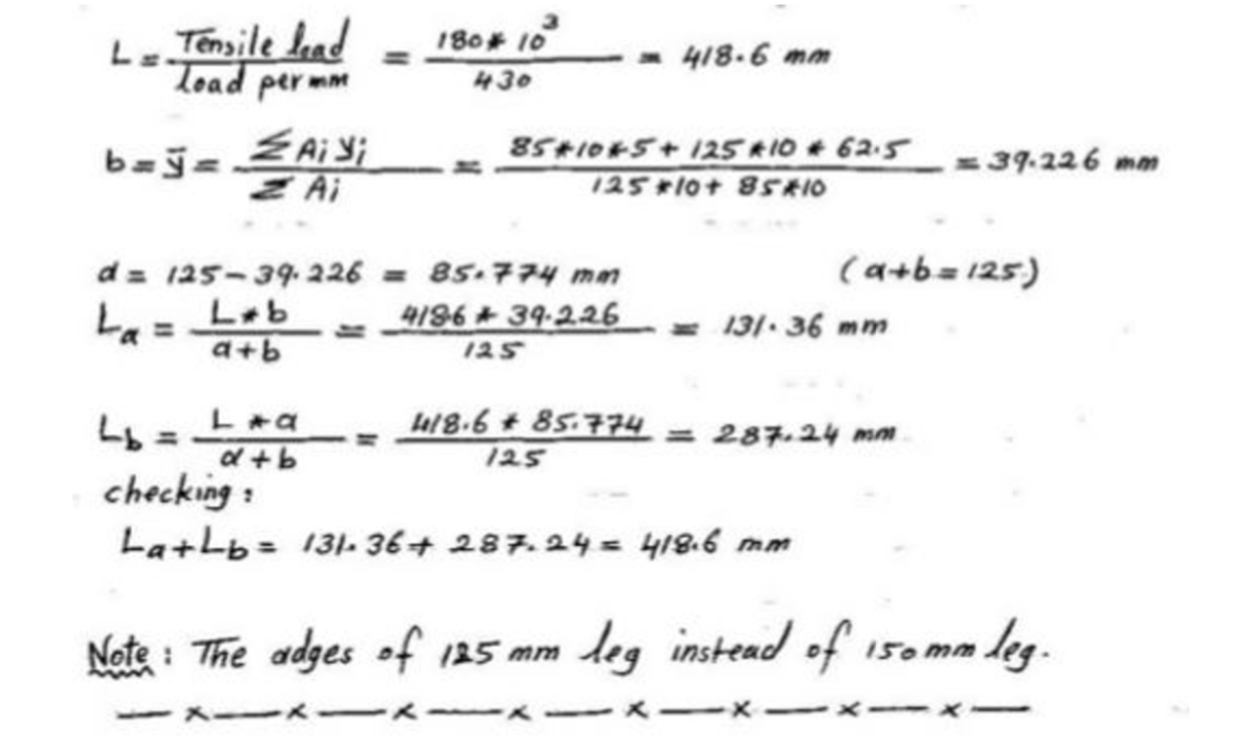 L = Tensile load / load per mm = 180*10³ / 430 = 418.6 mm
b = ȳ = Σ Ai yi / Σ Ai = 85*10*5 + 125*10*62.5 / 125*10 + 85*10 = 39.226 mm
a = 125 - 39.226 = 85.774 mm (a+b = 125)
La = L*b / a+b = 4186 * 39.226 / 125 = 131.36 mm
Lb = L*a / a+b = 418.6 * 85.774 / 125 = 287.24 mm
checking:
La + Lb = 131.36 + 287.24 = 418.6 mm
Note: The adges of 125 mm leg instead of 150 mm leg.
— x — x — x — x — x — x — x — x —